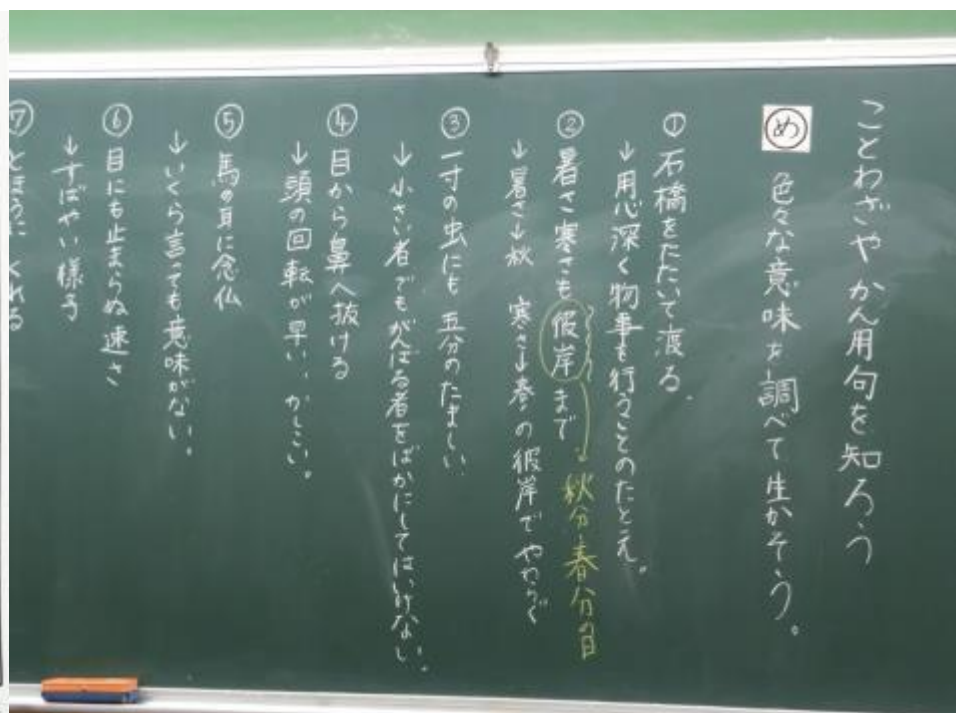 ことわざやかん用句を知ろう
め 色々な意味を調べて生かそう。
① 石橋をたたいて渡る
→用心深く物事を行うことのたとえ。
② 暑さ寒さも彼岸まで → 秋分・春分の日
→暑さ→秋 寒さ→春の彼岸でやわらぐ
③ 一寸の虫にも五分のたましい
→小さい者でもがんばる者をばかにしてはいけない。
④ 目から鼻へ抜ける
→頭の回転が早い、かしこい。
⑤ 馬の耳に念仏
→いくら言っても意味がない。
⑥ 目にも止まらぬ速さ
→すばやい様子
⑦ とほうにくれる